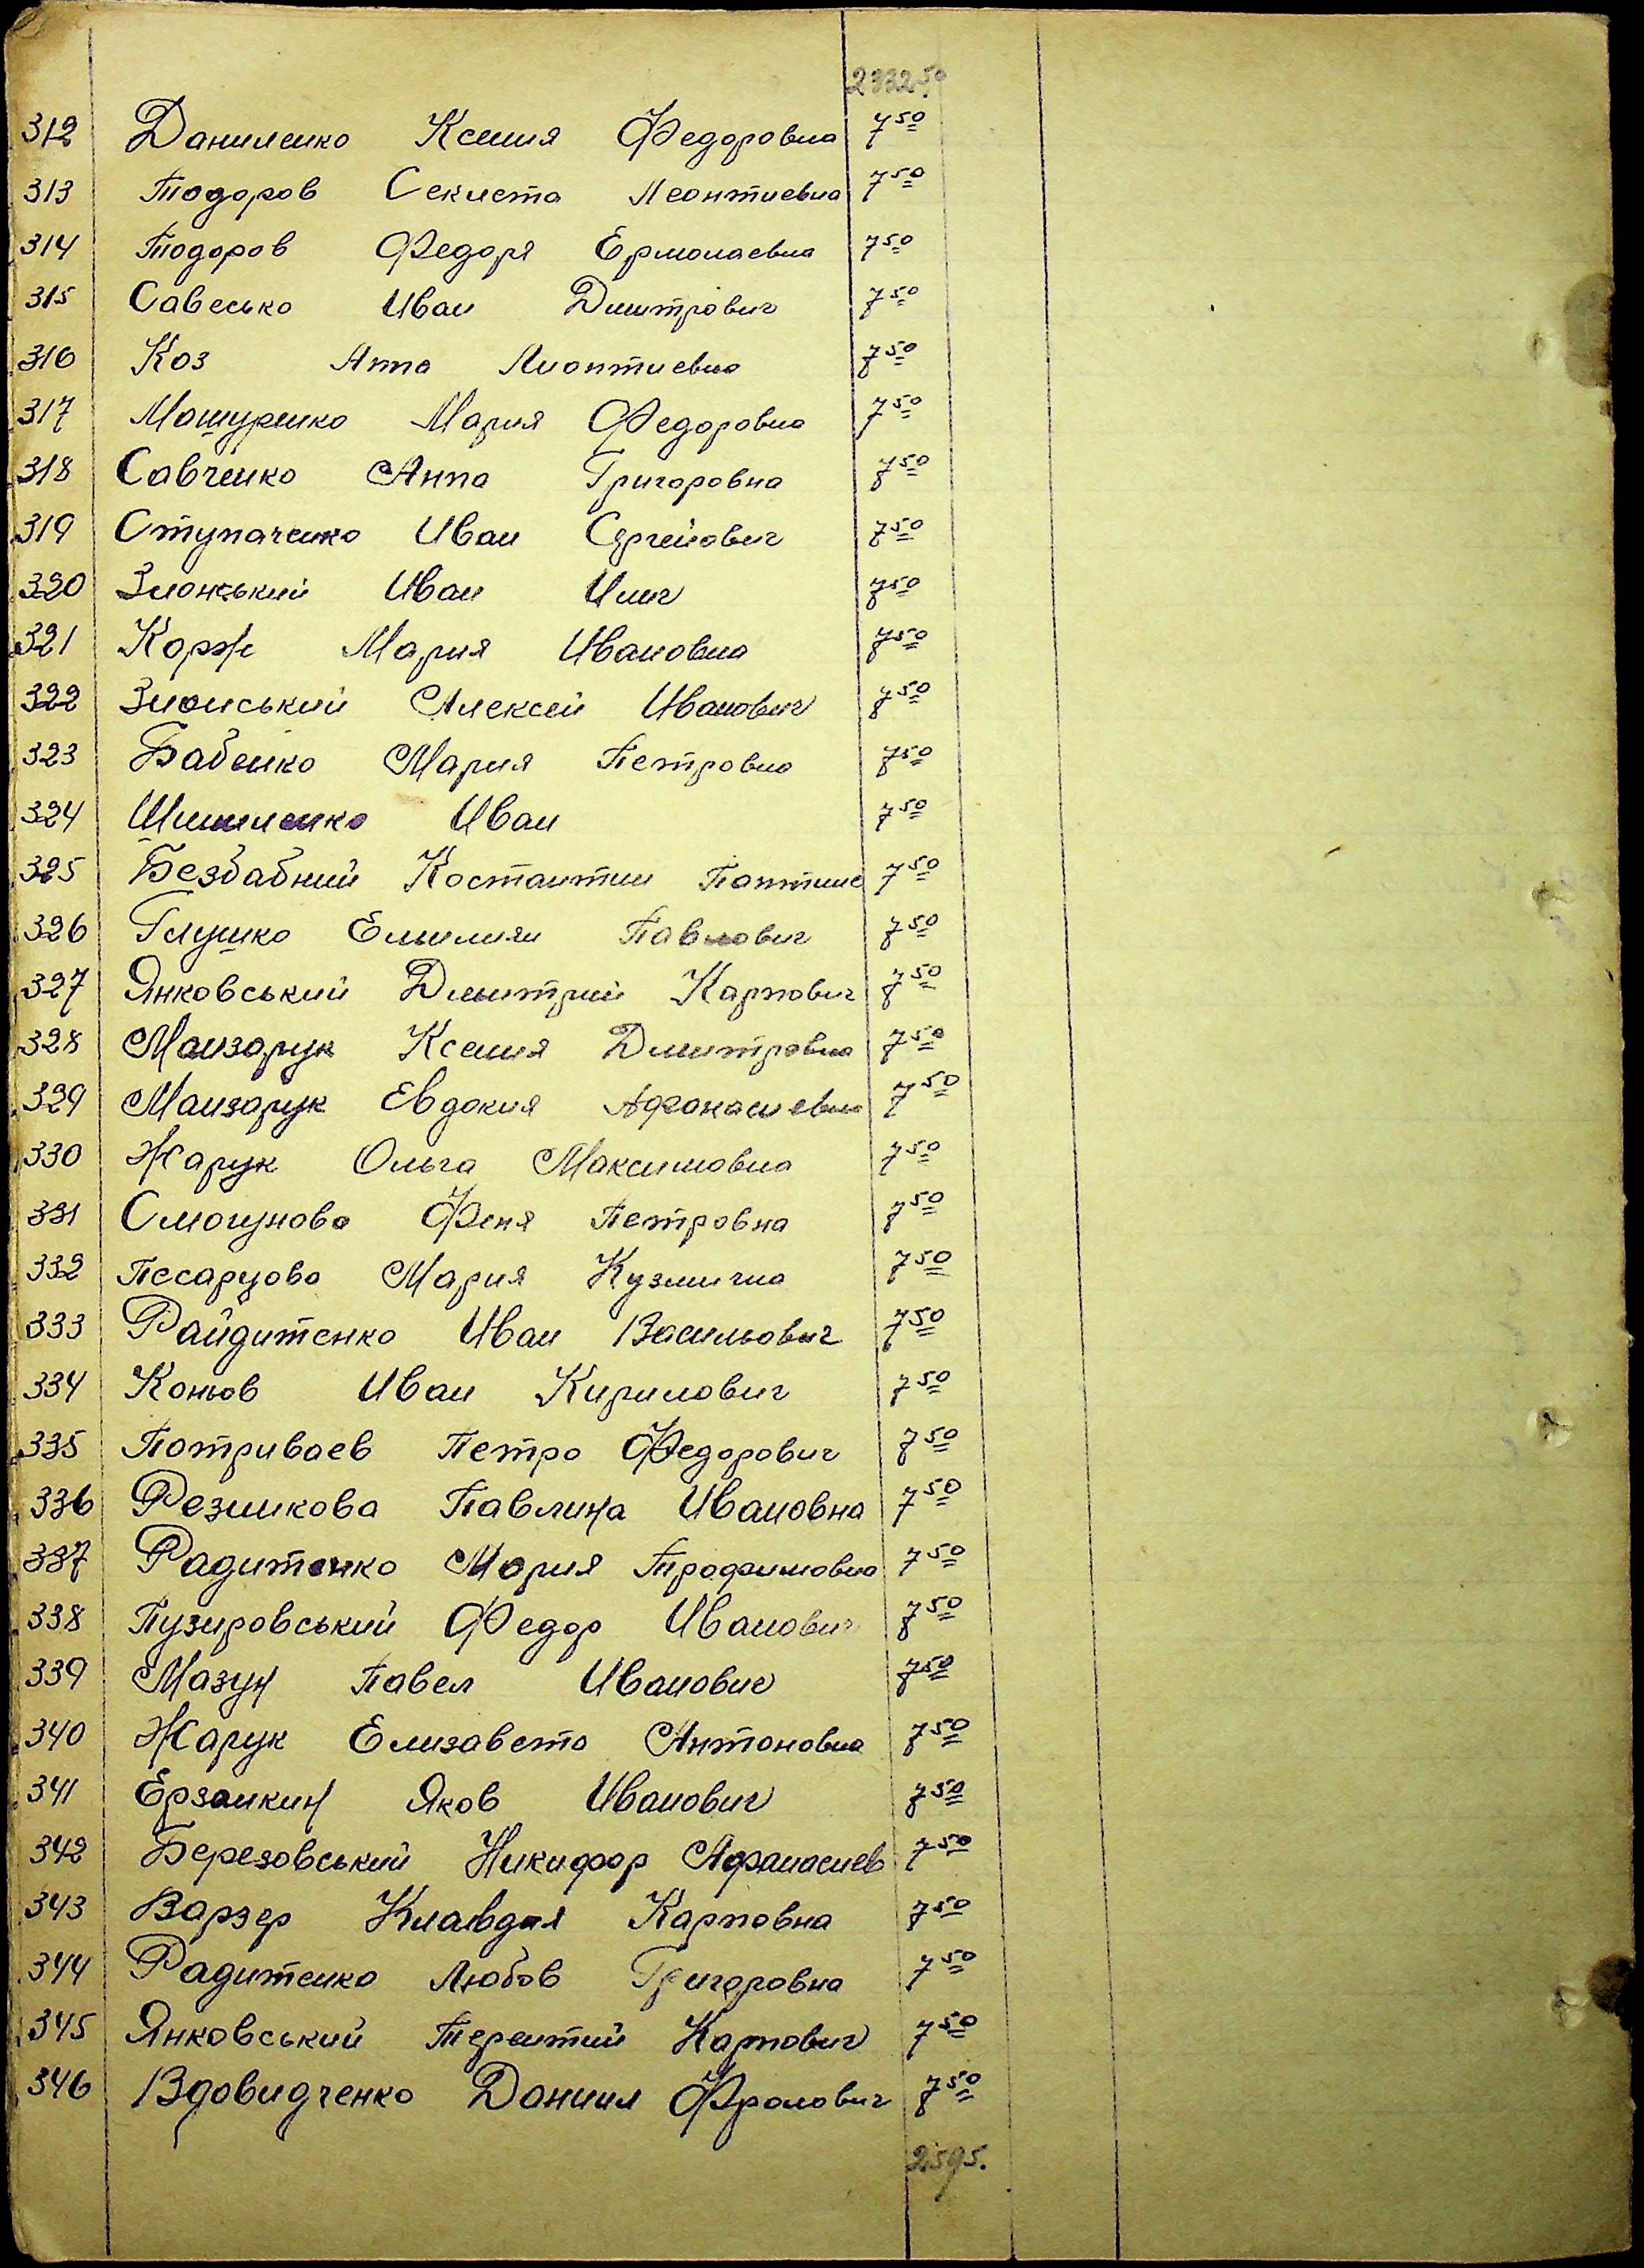 2332 50
312 Даниленко Ксения Федоровна 7 50
313 Тодоров Секлета Леонтиевна 7 50
314 Тодоров Федоря Ермолаевна 7 50
315 Савесько Иван Дмитрович 7 50
316 Коз Анна Лионтиевна 7 50
317 Машуренко Мария Федоровна 7 50
318 Савченко Анна Григоровна 7 50
319 Ступаченко Иван Сергейович 7 50
320 Злонський Иван Илич 7 50
321 Корж Мария Ивановна 7 50
322 Злонський Алексей Иванович 7 50
323 Бабенко Мария Петровна 7 50
324 Шишленко Иван 7 50
325 Безбабний Костантин 7 50
326 Глушко Емилиян Павлович 7 50
327 Янковський Дмитрий Карпович 7 50
328 Манзарук Ксения Дмитровна 7 50
329 Манзарук Евдокия Афанасиевна 7 50
330 Жарук Ольга Максимовна 7 50
331 Смогунова Феня Петровна 7 50
332 Песарцова Мария Кузмична 7 50
333 Райдитенко Иван Васильович 7 50
334 Коньов Иван Кирилович 7 50
335 Потриваев Петро Федорович 7 50
336 Резникова Павлина Ивановна 7 50
337 Радитенко Мария Трофимовна 7 50
338 Пузировський Федор Иванович 7 50
339 Мазун Павел Иванович 7 50
340 Жарук Елизавета Антоновна 7 50
341 Ерзанкин Яков Иванович 7 50
342 Березовський Никифор Афанасиев 7 50
343 Варзер Клавдия Карповна 7 50
344 Радитенко Любов Григоровна 7 50
345 Янковський Терентий Карпович 7 50
346 Вдовидченко Даниил Фролович 7 50
2595.